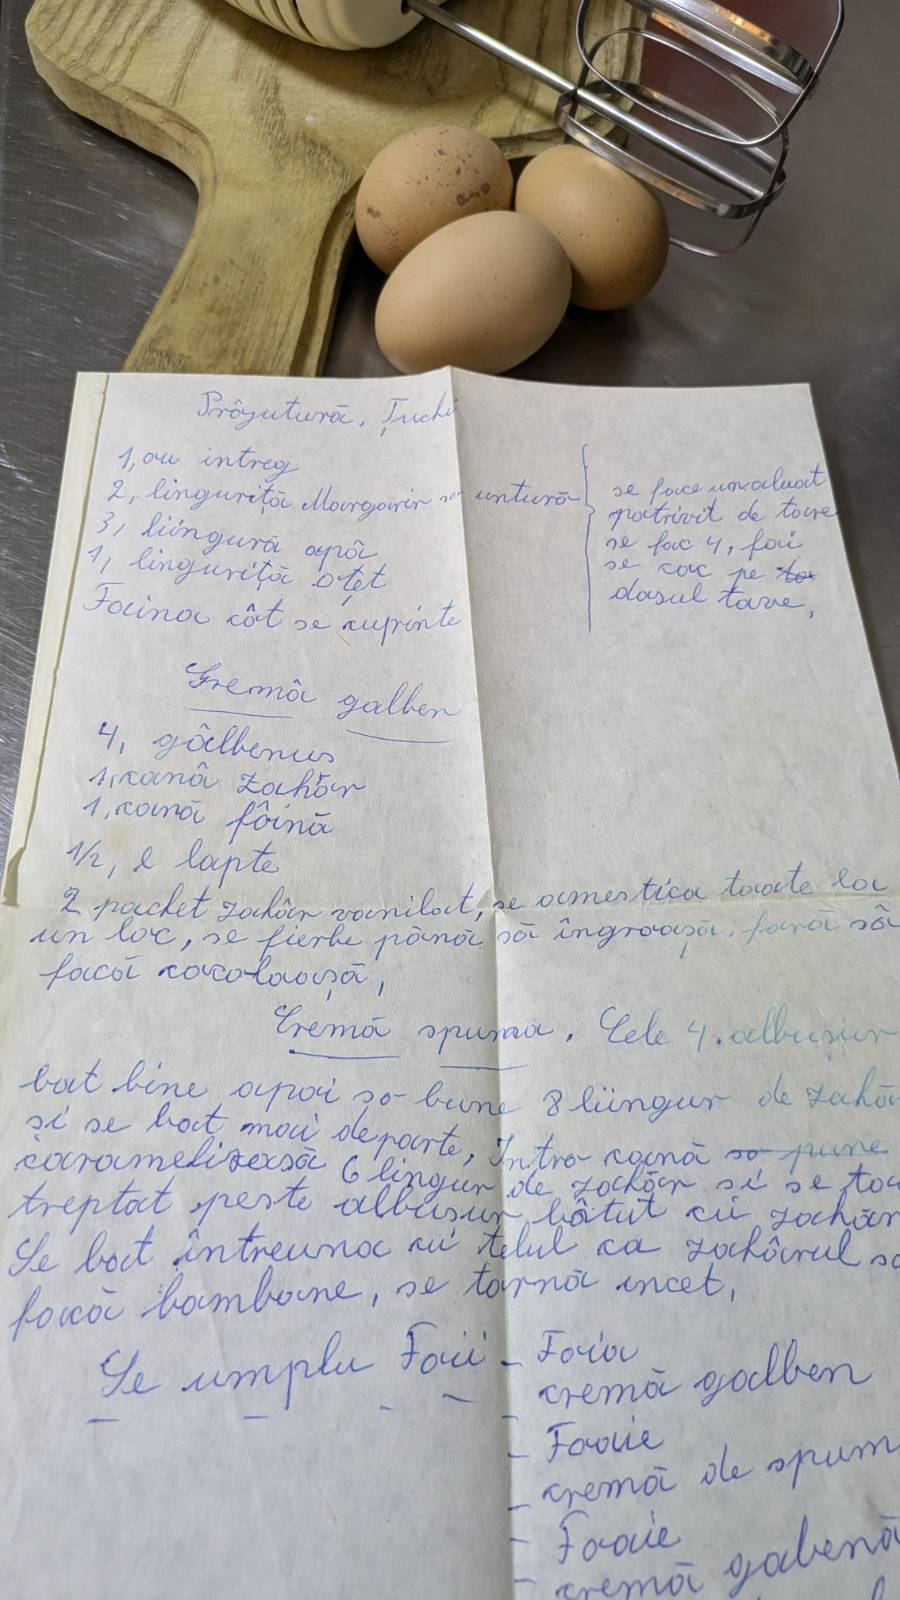 Prăjutură, Țuchi
1, ou intreg
2, linguriță Margarin sa untură
3, lingură apă
1, linguriță oțet
Faina cât se cuprinte
se face un aluat
patrivit de tare
se fac 4, foi
se coc pe to
dasul tave,
Cremă galben
4, gălbenus
1, cană zahăr
1, cană făină
1/2, l lapte
2 pachet zahăr vanilat, se amestica toate la
un loc, se fierbe pănă să îngroașă, fară să
facă cocoloașă,
Cremă spuma. Cele 4. albușur
bat bine apoi sa bune 8 lingur de zahăr
si se bat mai departe, Intro cană sa pune
caramelizeasă 6 lingur de zachăr si se toa
treptat peste albusur bătut cu zahăr
Se bat întreuna cu telul ca zahărul sa
facă bamboane, se tarnă incet,
Se umplu Foii - Foia
cremă galben
- Foaie
- cremă de spum
- Foaie
- cremă gabenă